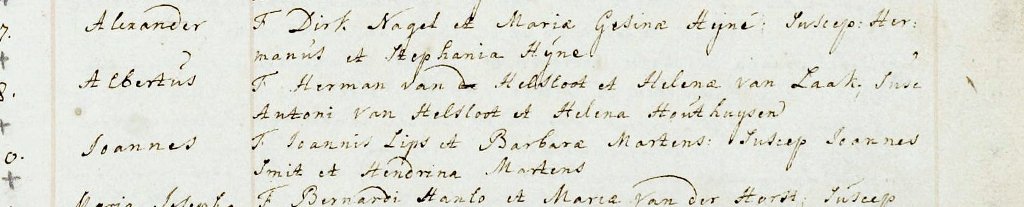 7. Alexander F Dirk Nagel et Mariæ Gesinæ Hÿne; Suscep: Her:
manus et Stephania Hÿne
8. Albertus F Herman van de Helsloot et Helenæ van Laak; Susc
Antoni van Helsloot et Helena Houthuÿsen
0. Joannes F Joannis Lips et Barbaræ Martens: Suscep Joannes
Smit et Hendrina Martens
Maria Josepha F Bernardi Hanlo et Mariæ van der Horst; Suscep